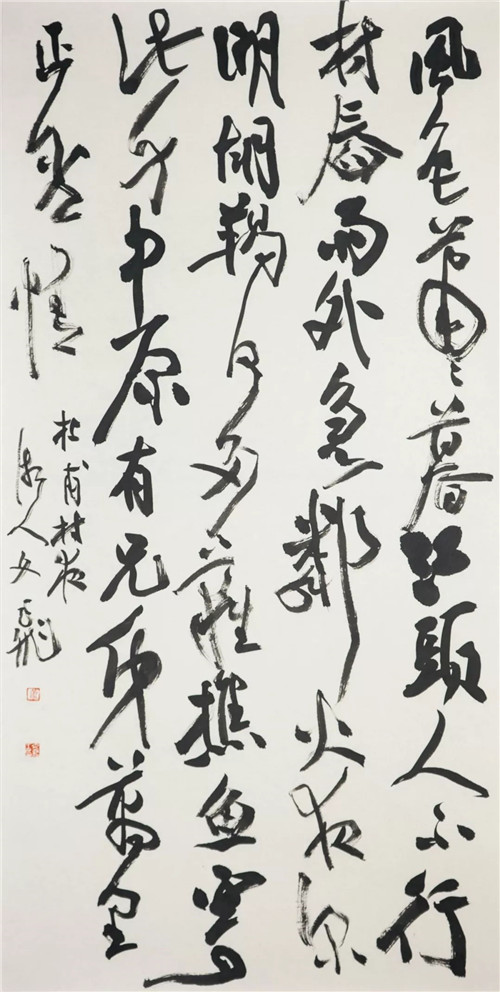 風色蕭〻暮江頭人不行
村舂雨外急鄰火夜深
明胡羯何多難樵魚寄
此生中原有兄弟萬里
正含情
杜甫村夜
人文